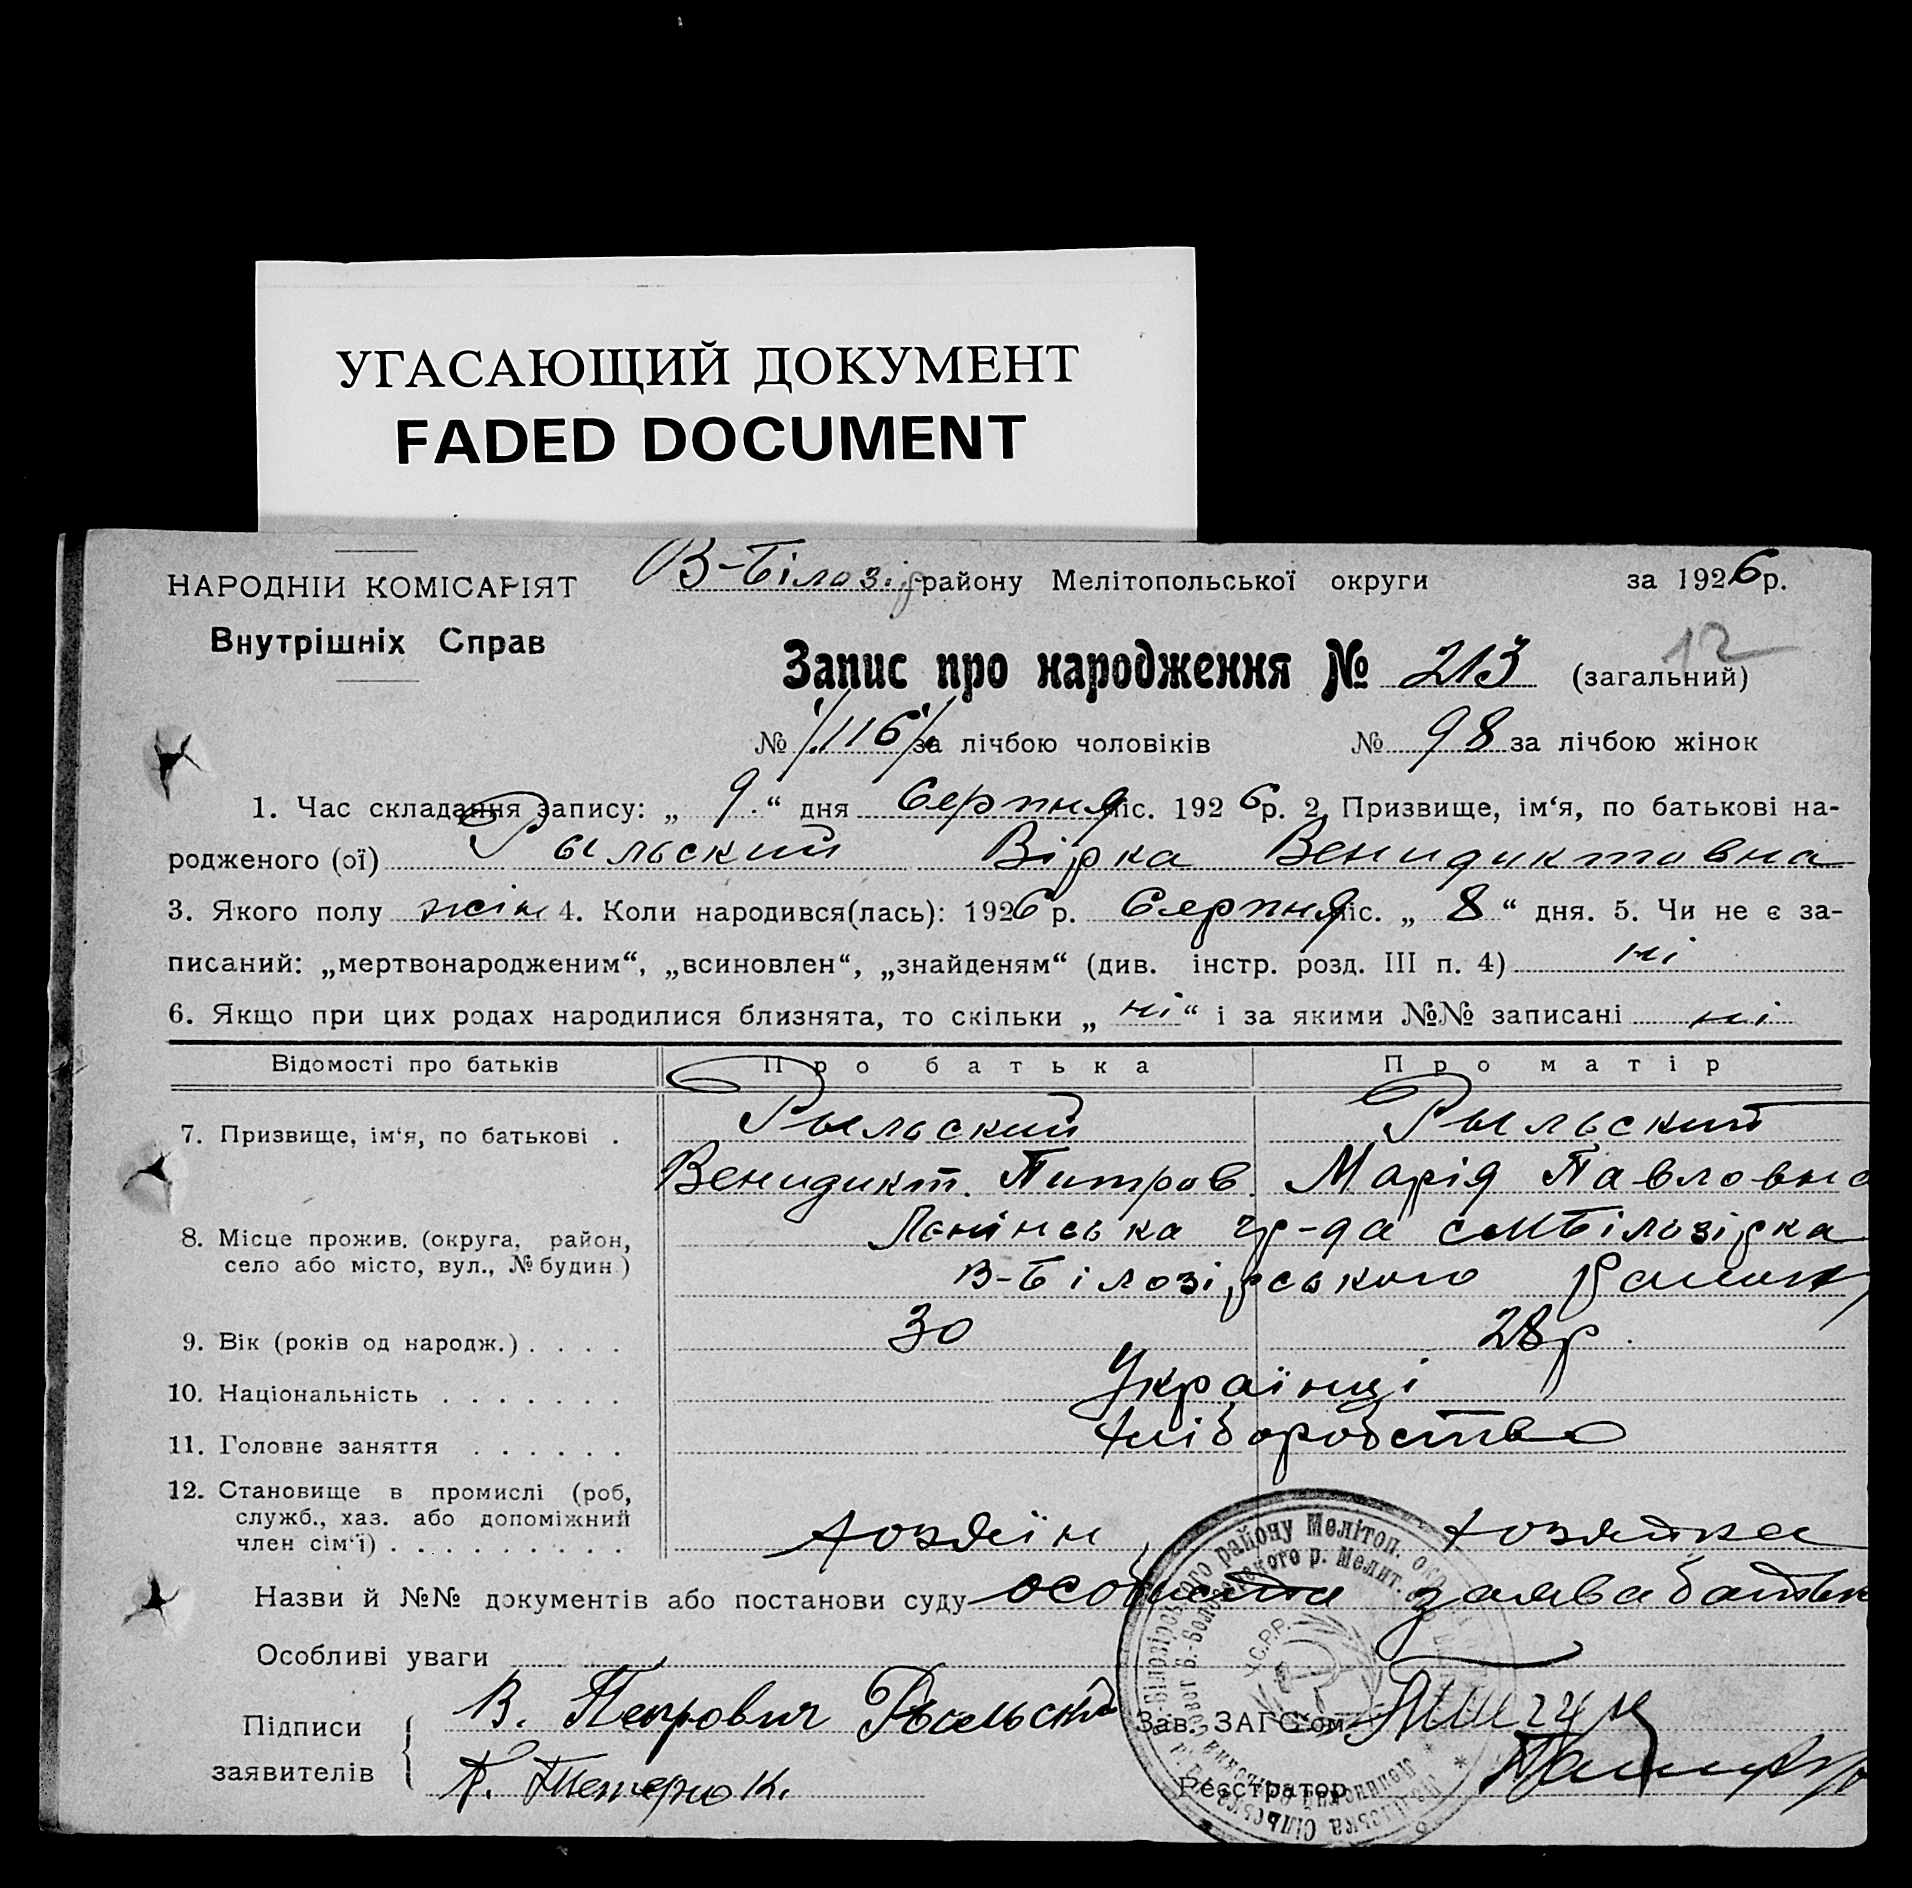 УГАСАЮЩИЙ ДОКУМЕНТ
FADED DOCUMENT
НАРОДНІЙ КОМІСАРІЯТ
Внутрішніх Справ
В-Білозір району Мелітопольської округи за 1926 р.
12
Запис про народження № 213 (загальний)
№ /116/ за лічбою чоловіків № 98 за лічбою жінок
1. Час складання запису: „ 9 “ дня Серпня міс. 1926 р. 2. Призвище, ім‘я, по батькові на-
родженого (ої) Рыльский Вірка Венидиктовна
3. Якого полу жін 4. Коли народився(лась): 1926 р. Серпня міс. „ 8 “ дня. 5. Чи не є за-
писаний: „мертвонародженим“, „всиновлен“, „знайденям“ (див. інстр. розд. III п. 4) ні
6. Якщо при цих родах народилися близнята, то скільки „ ні “ і за якими №№ записані ні
Відомості про батьків Про батька Про матір
7. Призвище, ім‘я, по батькові . Рыльский Рыльский
Венидикт. Питров. Марія Павловна
8. Місце прожив. (округа, район, Ленінська гр-да Білозірка
село або місто, вул., № будин) В-Білозірського
9. Вік (років од народж.) . . . . 30 28 р.
10. Національність . . . . . . . Українці
11. Головне заняття . . . . . . Хліборобство
12. Становище в промислі (роб,
служб., хаз. або допоміжний
член сім‘ї) . . . . . . . . . . Хозяїн Хозяйка
Назви й №№ документів або постанови суду особиста заява батька
Особливі уваги
Підписи В. Петрович Рыльский Зав. ЗАГС‘ом
заявителів К. Реєстратор
У.С.Р.Р.
району Мелітоп.
р. Мелит.